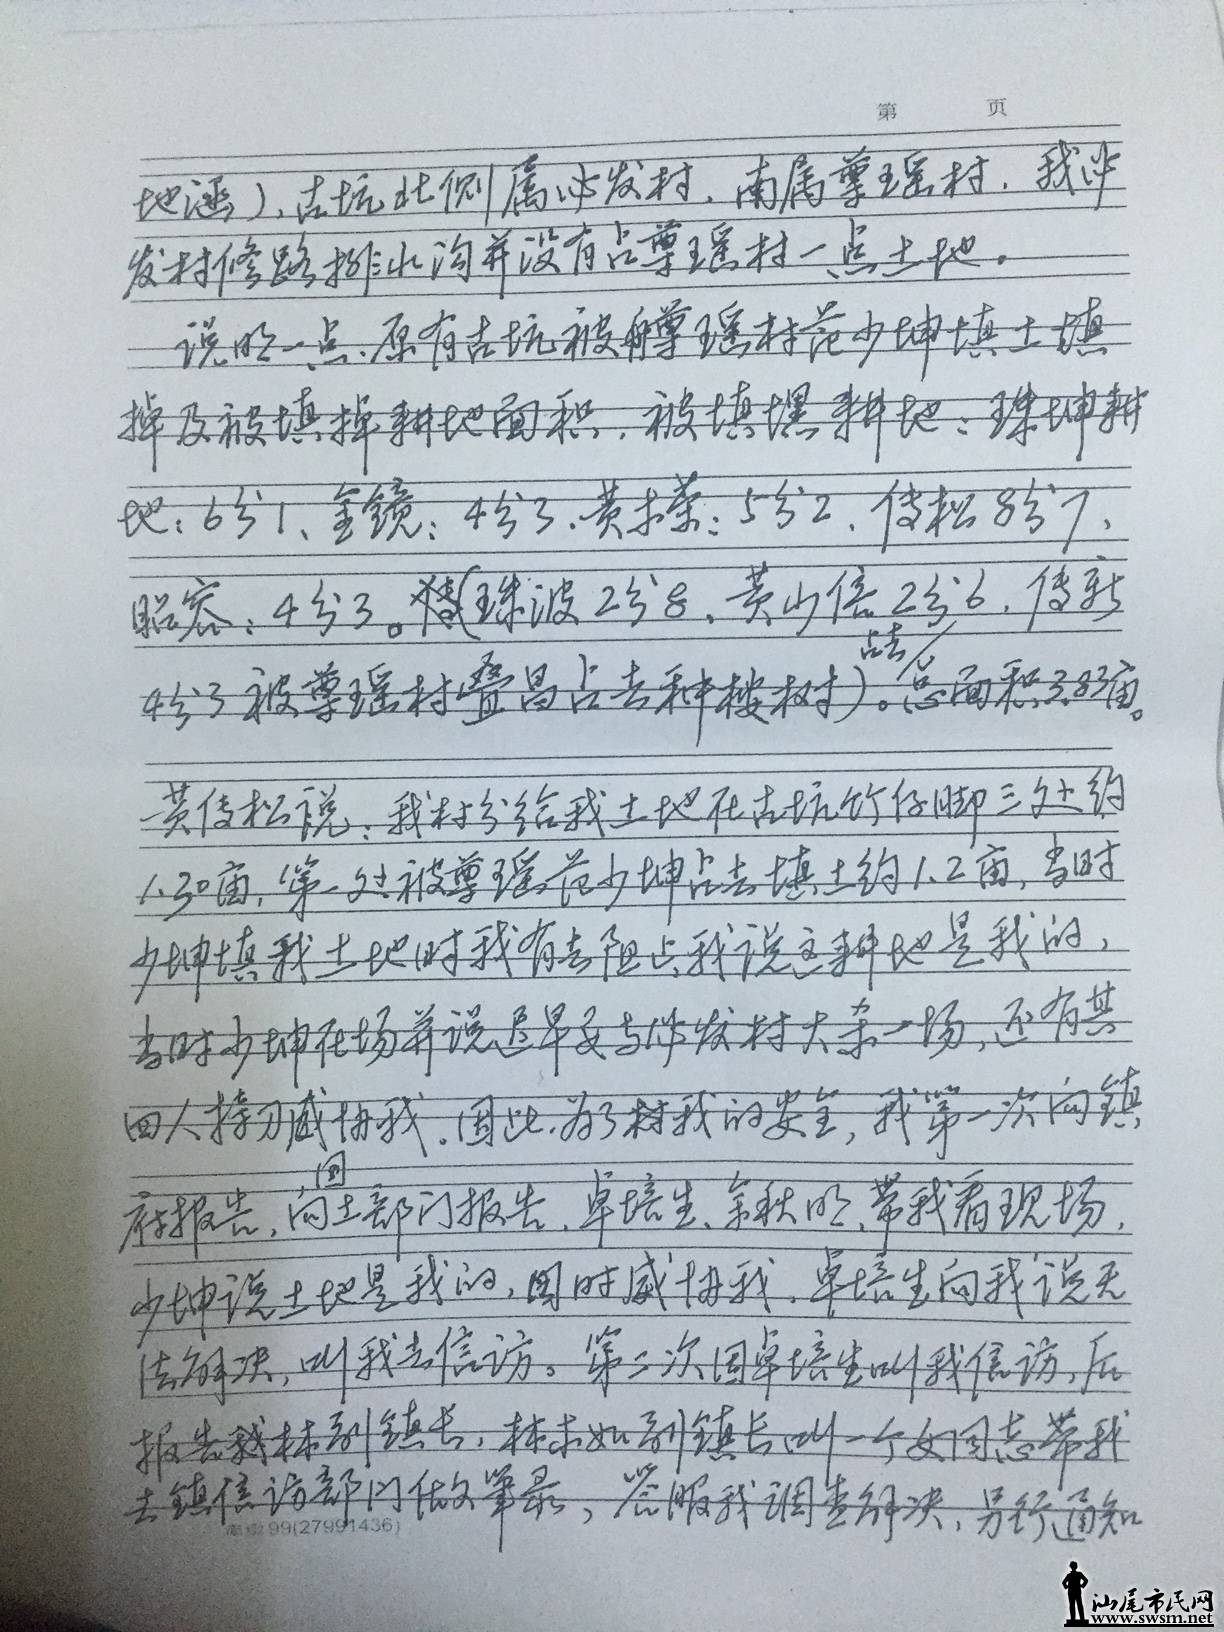 第 页
地涵)、古坑北侧属沙发村，南属尊瑶村，我沙
发村修路排水沟并没有占尊瑶村一点土地。
说明一点、原有古坑被尊瑶村范少坤填土填
掉及被填掉耕地面积，被填埋耕地：珠坤耕
地：6分1、金镜：4分3、黄木荣：5分2、传松8分7、
昭容：4分3。(珠波2分8、黄山信2分6、传新
占去
4分3被尊瑶村叠昌占去种楼树)。总面积3.83亩。
黄传松说：我村分给我土地在古坑竹仔脚三处约
1.30亩，第一处被尊瑶范少坤占去填土约1.2亩，当时
少坤填我土地时我有去阻止我说这耕地是我的，
当时少坤在场并说迟早要与沙发村大杀一场，还有其
四人持刀威协我，因此、为了我的安全，我第一次向镇
国
府报告，向土部门报告，卓培生、余秋明、带我看现场，
少坤说土地是我的，同时威协我，卓培生向我说无
法解决，叫我去信访。第二次因卓培生叫我信访，后
报告我林副镇长，林木如副镇长叫一个女同志带我
去镇信访部门做笔录，答服我调查解决，另行通知
99(27991436)
汕尾市民网
www.swsm.net